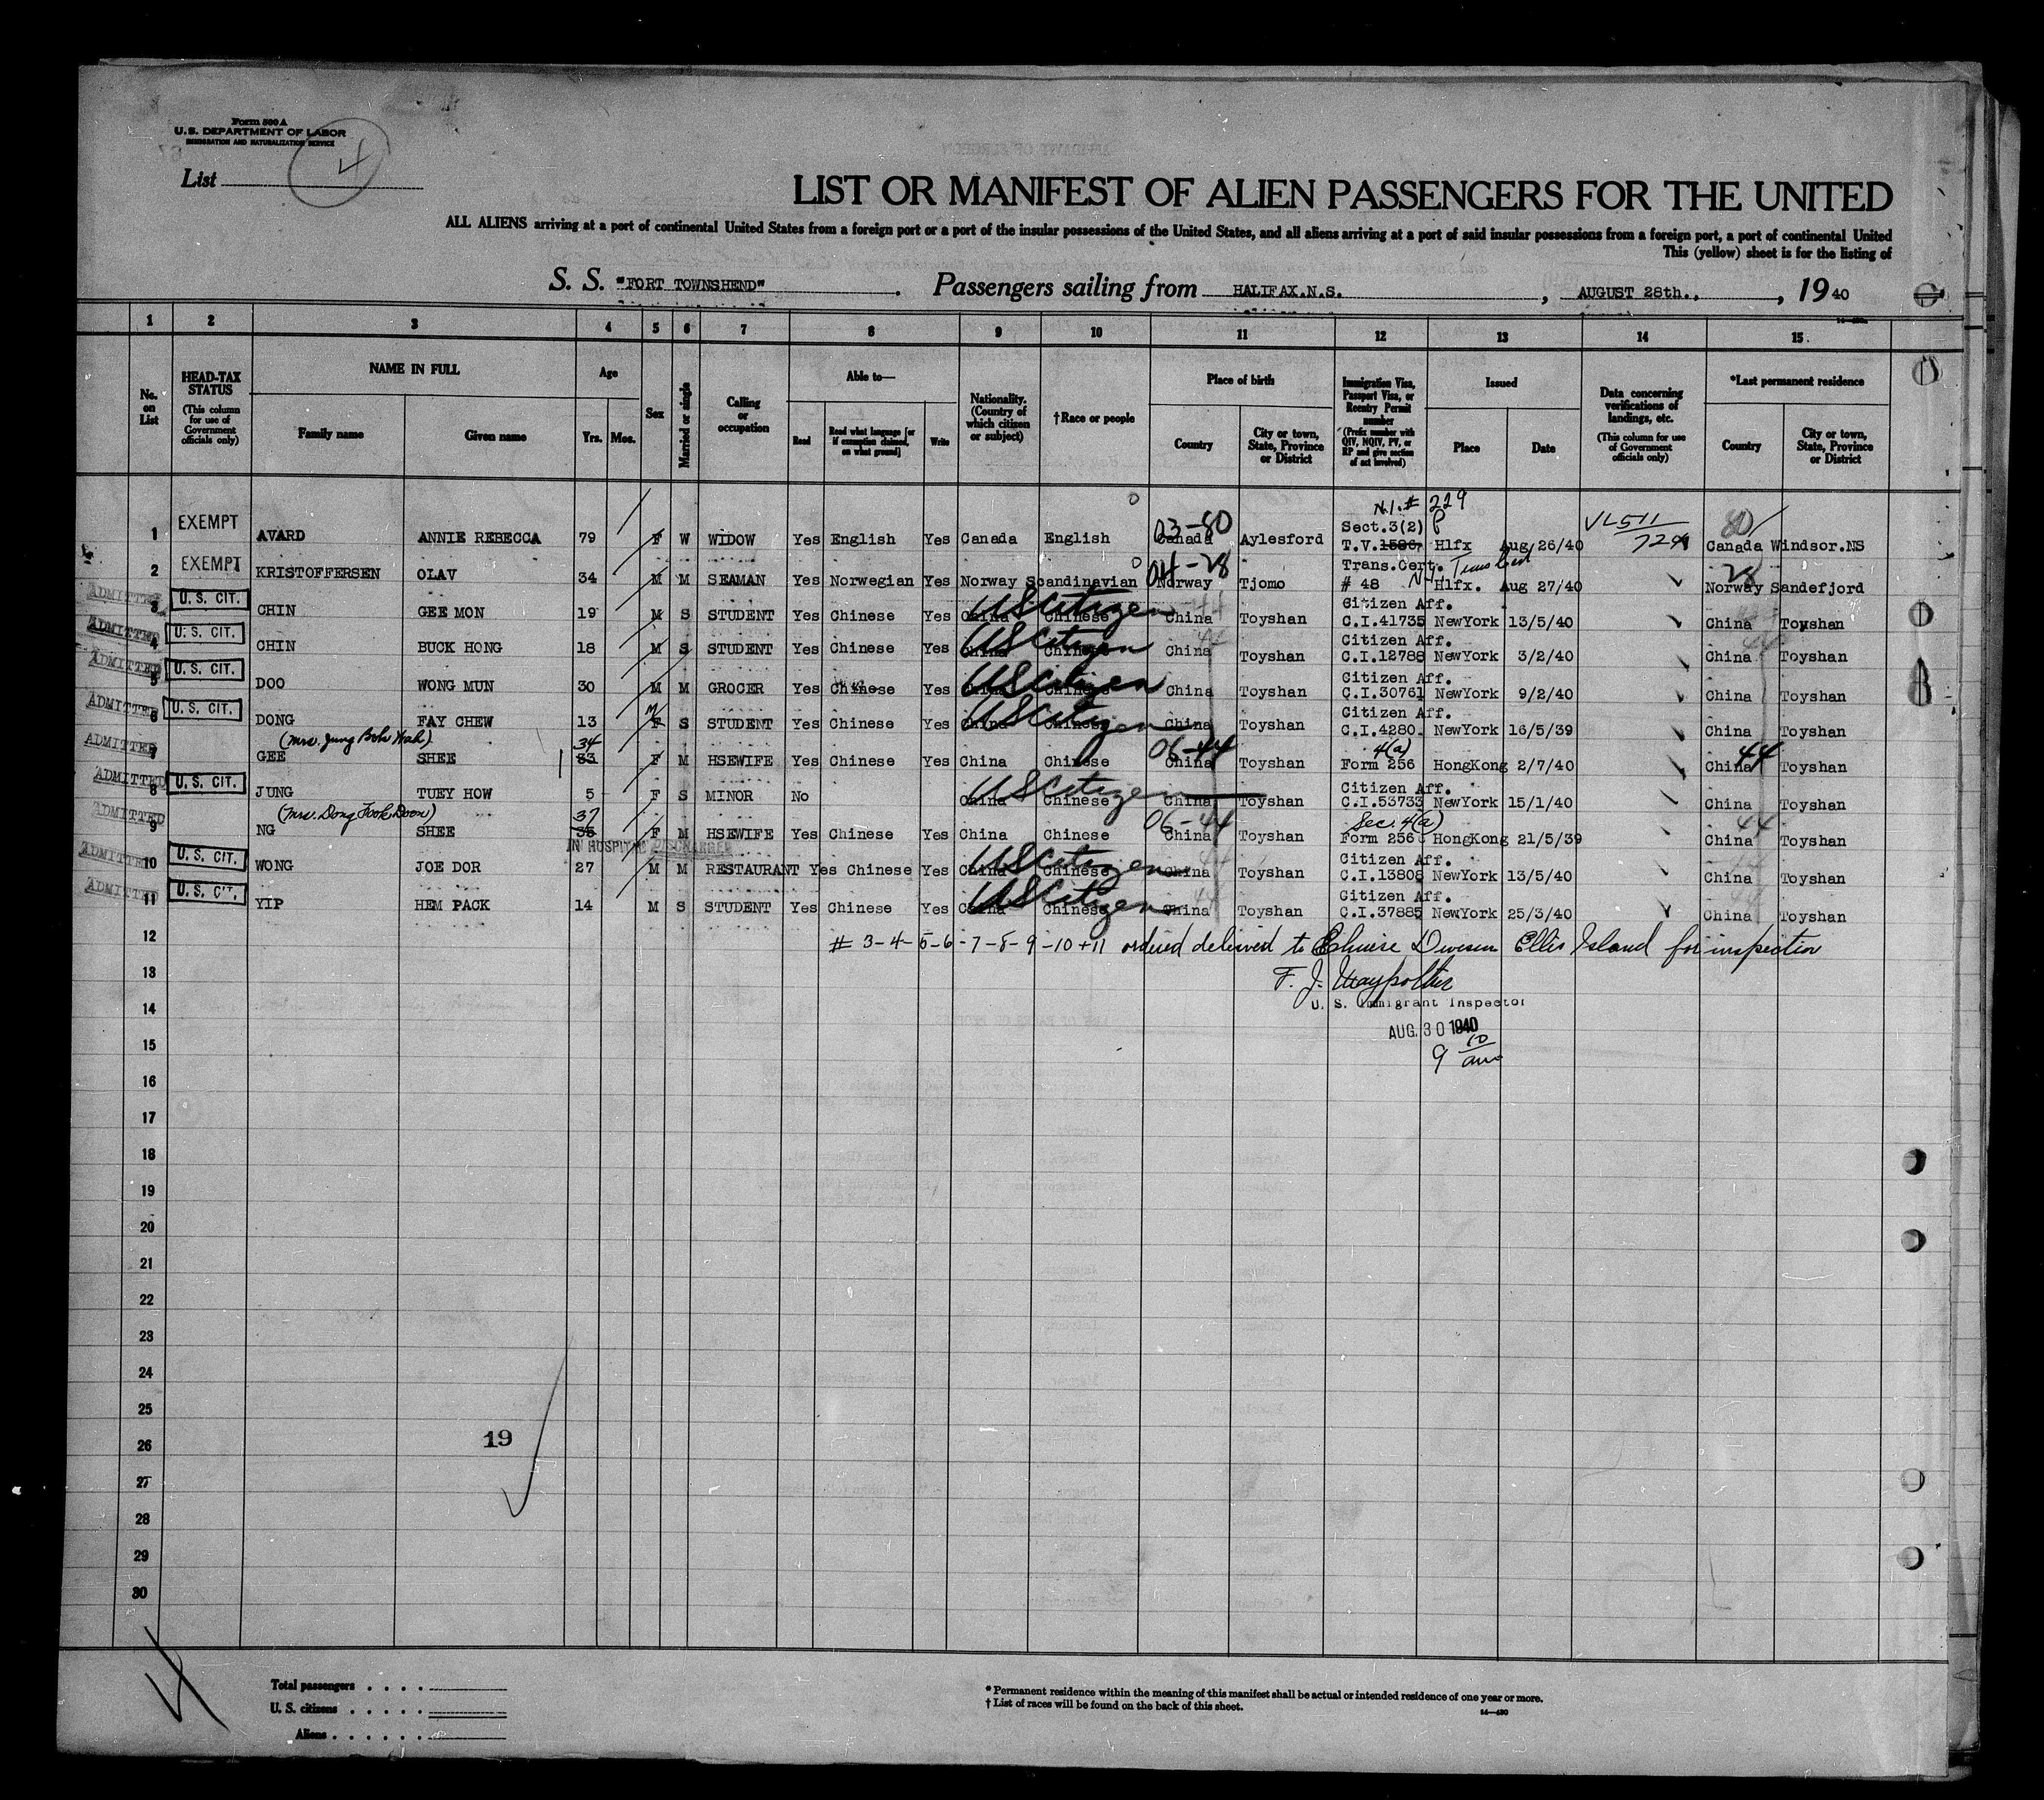 Form 500 A
U.S. DEPARTMENT OF LABOR
IMMIGRATION AND NATURALIZATION SERVICE
List 4
LIST OR MANIFEST OF ALIEN PASSENGERS FOR THE UNITED
ALL ALIENS arriving at a port of continental United States from a foreign port or a port of the insular possessions of the United States, and all aliens arriving at a port of said insular possessions from a foreign port, a port of continental United
This (yellow) sheet is for the listing of
S. S. "FORT TOWNSHEND" . Passengers sailing from HALIFAX.N.S. , AUGUST 28th., , 19 40
1 2 3 4 5 6 7 8 9 10 11 12 13 14 15
No. on List
HEAD-TAX STATUS (This column for use of Government officials only)
NAME IN FULL
Family name
Given name
Age
Yrs. Mos.
Sex
Married or single
Calling or occupation
Able to—
Read
Read what language [or if exemption claimed, on what ground]
Write
Nationality. (Country of which citizen or subject)
†Race or people
Place of birth
Country
City or town, State, Province or District
Immigration Visa, Passport Visa, or Reentry Permit number (Prefix number with QIV, NQIV, PV, or RP and give section of act involved)
Issued
Place
Date
Data concerning verifications of landings, etc. (This column for use of Government officials only)
*Last permanent residence
Country
City or town, State, Province or District
N.I.# 229
EXEMPT 03-80 Sect.3(2) P VL511 80
1 AVARD ANNIE REBECCA 79 F W WIDOW Yes English Yes Canada English Canada Aylesford T.V. Hlfx Aug 26/40 Canada Windsor.NS
EXEMPT 04-28 Trans.Cert. Trans Cert 28
2 KRISTOFFERSEN OLAV 34 M M SEAMAN Yes Norwegian Yes Norway Scandinavian Norway Tjomo # 48 Hlfx. Aug 27/40 Norway Sandefjord
ADMITTED U. S. CIT. US Citizen 44 Citizen Aff.
3 CHIN GEE MON 19 M S STUDENT Yes Chinese Yes China Chinese China Toyshan C.I.41735 NewYork 13/5/40 China Toyshan
ADMITTED U. S. CIT. US Citizen 44 Citizen Aff. 44
4 CHIN BUCK HONG 18 M S STUDENT Yes Chinese Yes China Chinese China Toyshan C.I.12788 NewYork 3/2/40 China Toyshan
ADMITTED U. S. CIT. US Citizen Citizen Aff.
5 DOO WONG MUN 30 M M GROCER Yes Chinese Yes China Chinese China Toyshan C.I.30761 NewYork 9/2/40 China Toyshan
ADMITTED U. S. CIT. M US Citizen Citizen Aff.
6 DONG FAY CHEW 13 F S STUDENT Yes Chinese Yes China Chinese China Toyshan C.I.4280. NewYork 16/5/39 China Toyshan
ADMITTED (Mrs. Jung Boh Wah) 34 06-44 4(a) 44
7 GEE SHEE 33 F M HSEWIFE Yes Chinese Yes China Chinese China Toyshan Form 256 HongKong 2/7/40 China Toyshan
ADMITTED U. S. CIT. US Citizen Citizen Aff.
8 JUNG TUEY HOW 5 F S MINOR No China Chinese China Toyshan C.I.53733 NewYork 15/1/40 China Toyshan
ADMITTED (Mrs. Dong Fook Doon) 37 06-44 Sec. 4(a) 44
9 NG SHEE 35 F M HSEWIFE Yes Chinese Yes China Chinese China Toyshan Form 256 HongKong 21/5/39 China Toyshan
IN HOSPITAL DISCHARGED
ADMITTED U. S. CIT. US Citizen 44 Citizen Aff. 44
10 WONG JOE DOR 27 M M RESTAURANT Yes Chinese Yes China Chinese China Toyshan C.I.13808 NewYork 13/5/40 China Toyshan
ADMITTED U. S. CIT. US Citizen 44 Citizen Aff. 44
11 YIP HEM PACK 14 M S STUDENT Yes Chinese Yes China Chinese China Toyshan C.I.37885 NewYork 25/3/40 China Toyshan
12 # 3-4-5-6-7-8-9-10+11 ordered delivered to Chinese Division Ellis Island for inspection
13 F. J.
U. S. Immigrant Inspector
14
AUG. 30 1940
15
9 10 am
16
17
18
19
20
21
22
23
24
25
19
26
27
28
29
30
4
Total passengers . . . .
U. S. citizens . . . . .
Aliens . . . . . .
* Permanent residence within the meaning of this manifest shall be actual or intended residence of one year or more.
† List of races will be found on the back of this sheet.